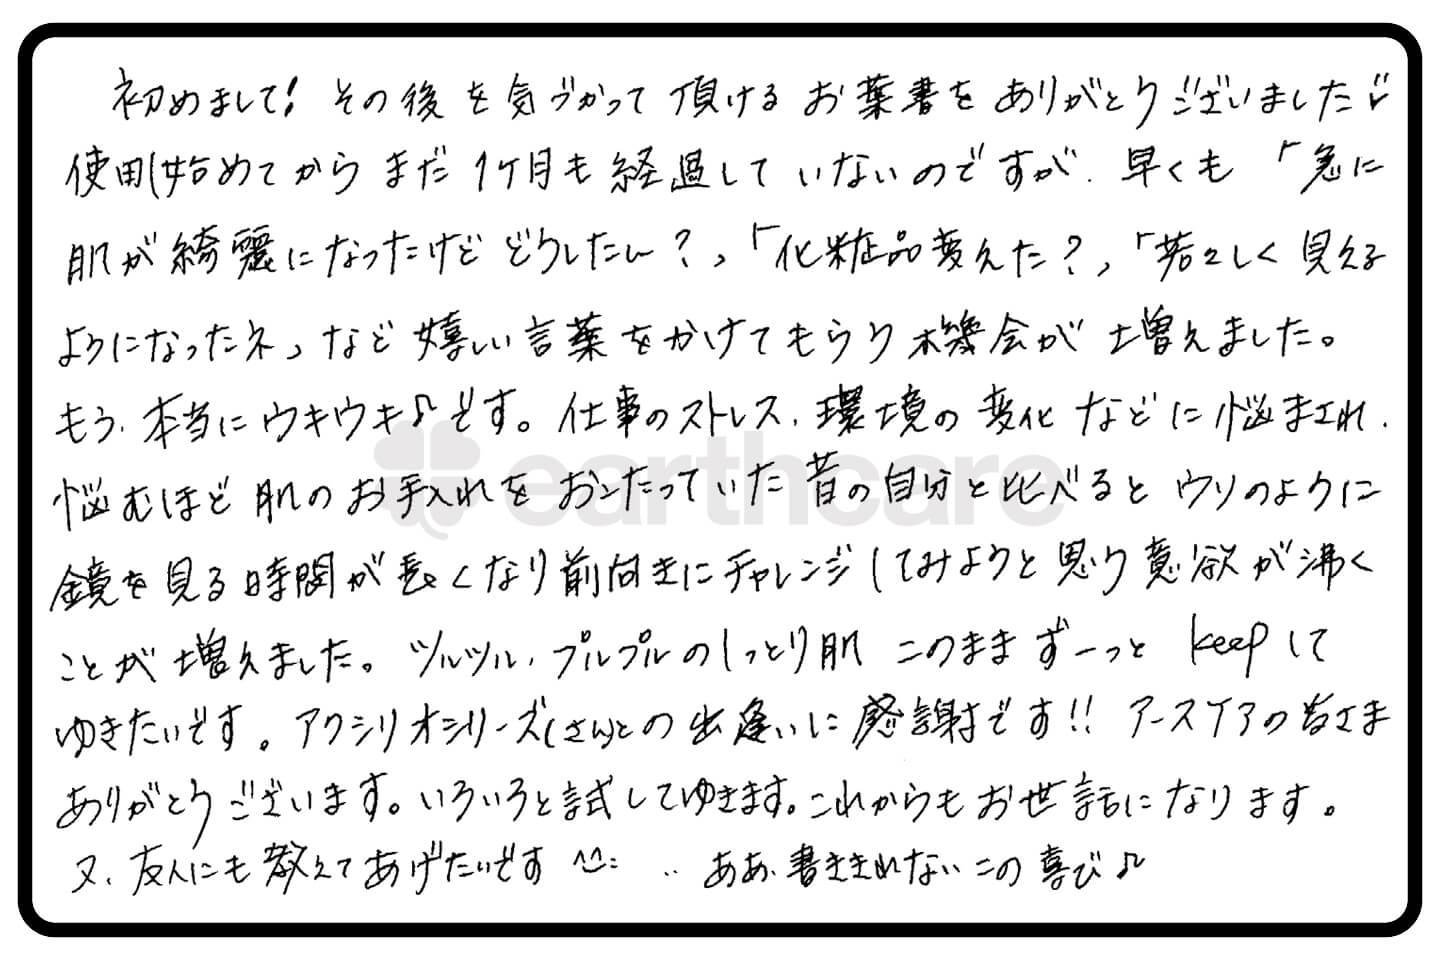 初めまして! その後を気づかって頂けるお葉書をありがとうございました
使用し始めてからまだ1ケ月も経過していないのですが、早くも「急に
肌が綺麗になったけどどうしたん?」「化粧品変えた?」「若々しく見える
ようになったネ」など嬉しい言葉をかけてもらう機会が増えました。
もう、本当にウキウキ♪です。仕事のストレス、環境の変化などに悩まされ、
悩むほど肌のお手入れをおこたっていた昔の自分と比べるとウソのように
鏡を見る時間が長くなり前向きにチャレンジしてみようと思う意欲が沸く
ことが増えました。ツルツル、プルプルのしっとり肌このままずーっとkeepして
ゆきたいです。アクシリオシリーズ(さん)との出逢いに感謝です!! アースケアの皆さま
ありがとうございます。いろいろと試してゆきます。これからもお世話になります。
又、友人にも教えてあげたいです ^^ ‥ ああ、書ききれないこの喜び♪
earthcare